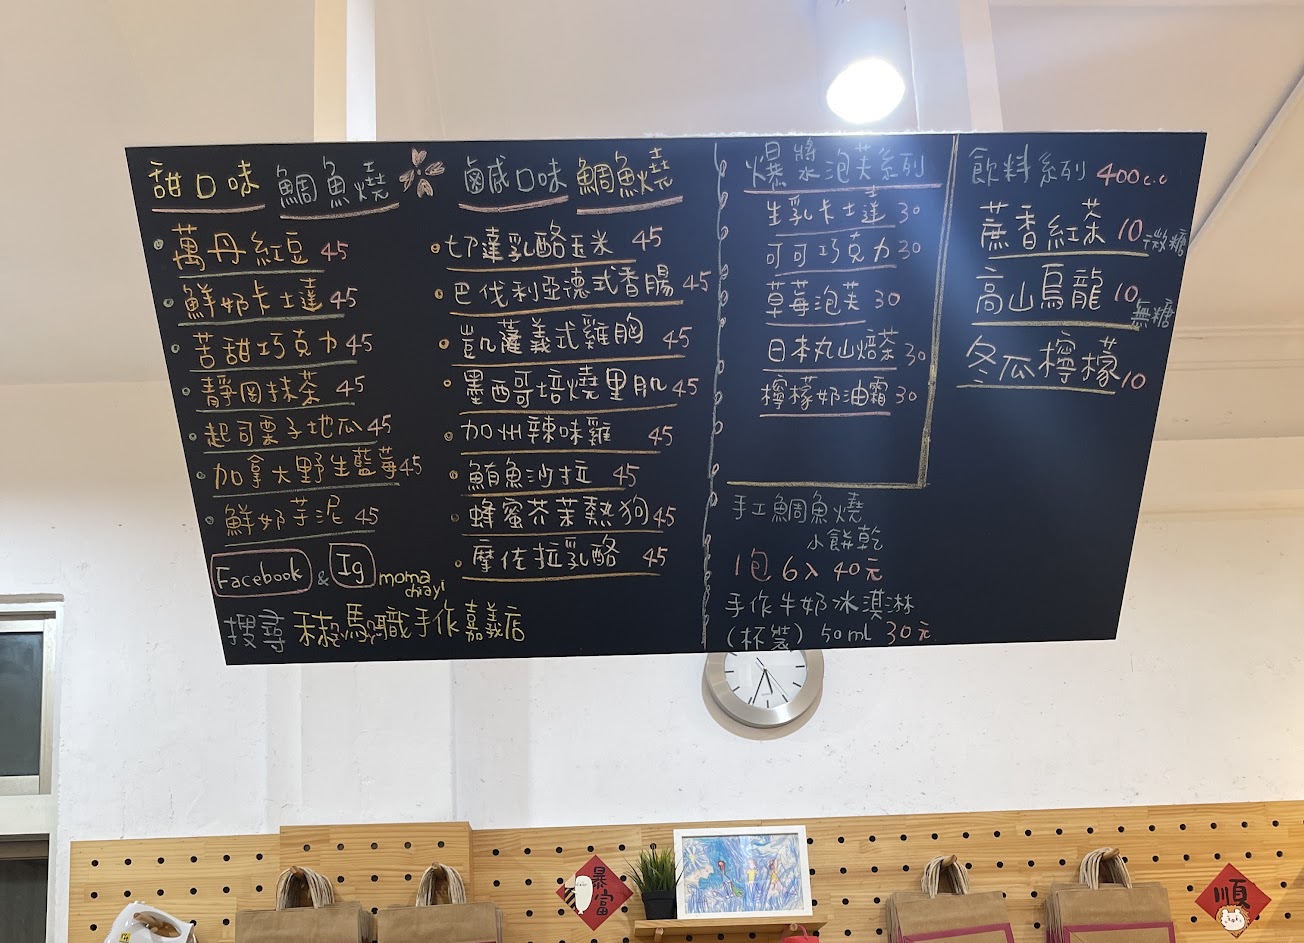 甜口味 鯛魚燒
萬丹紅豆 45
鮮奶卡士達 45
苦甜巧克力 45
靜岡抹茶 45
起司栗子地瓜 45
加拿大野生藍莓 45
鮮奶芋泥 45
Facebook & Ig moma chiayi
搜尋 秣馬職手作 嘉義店
鹹口味 鯛魚燒
切達乳酪玉米 45
巴伐利亞德式香腸 45
凱薩義式雞胸 45
墨西哥培燒里肌 45
加州辣味雞 45
鮪魚沙拉 45
蜂蜜芥茉熱狗 45
摩佐拉乳酪 45
爆漿泡芙系列
生乳卡士達 30
可可巧克力 30
草莓泡芙 30
日本丸山焙茶 30
檸檬奶油霜 30
手工鯛魚燒
小餅乾
1包 6入 40元
手作牛奶冰淇淋
(杯裝) 50ml 30元
飲料系列 400c.c
蔗香紅茶 10 微糖
高山烏龍 10 無糖
冬瓜檸檬 10
暴富
順